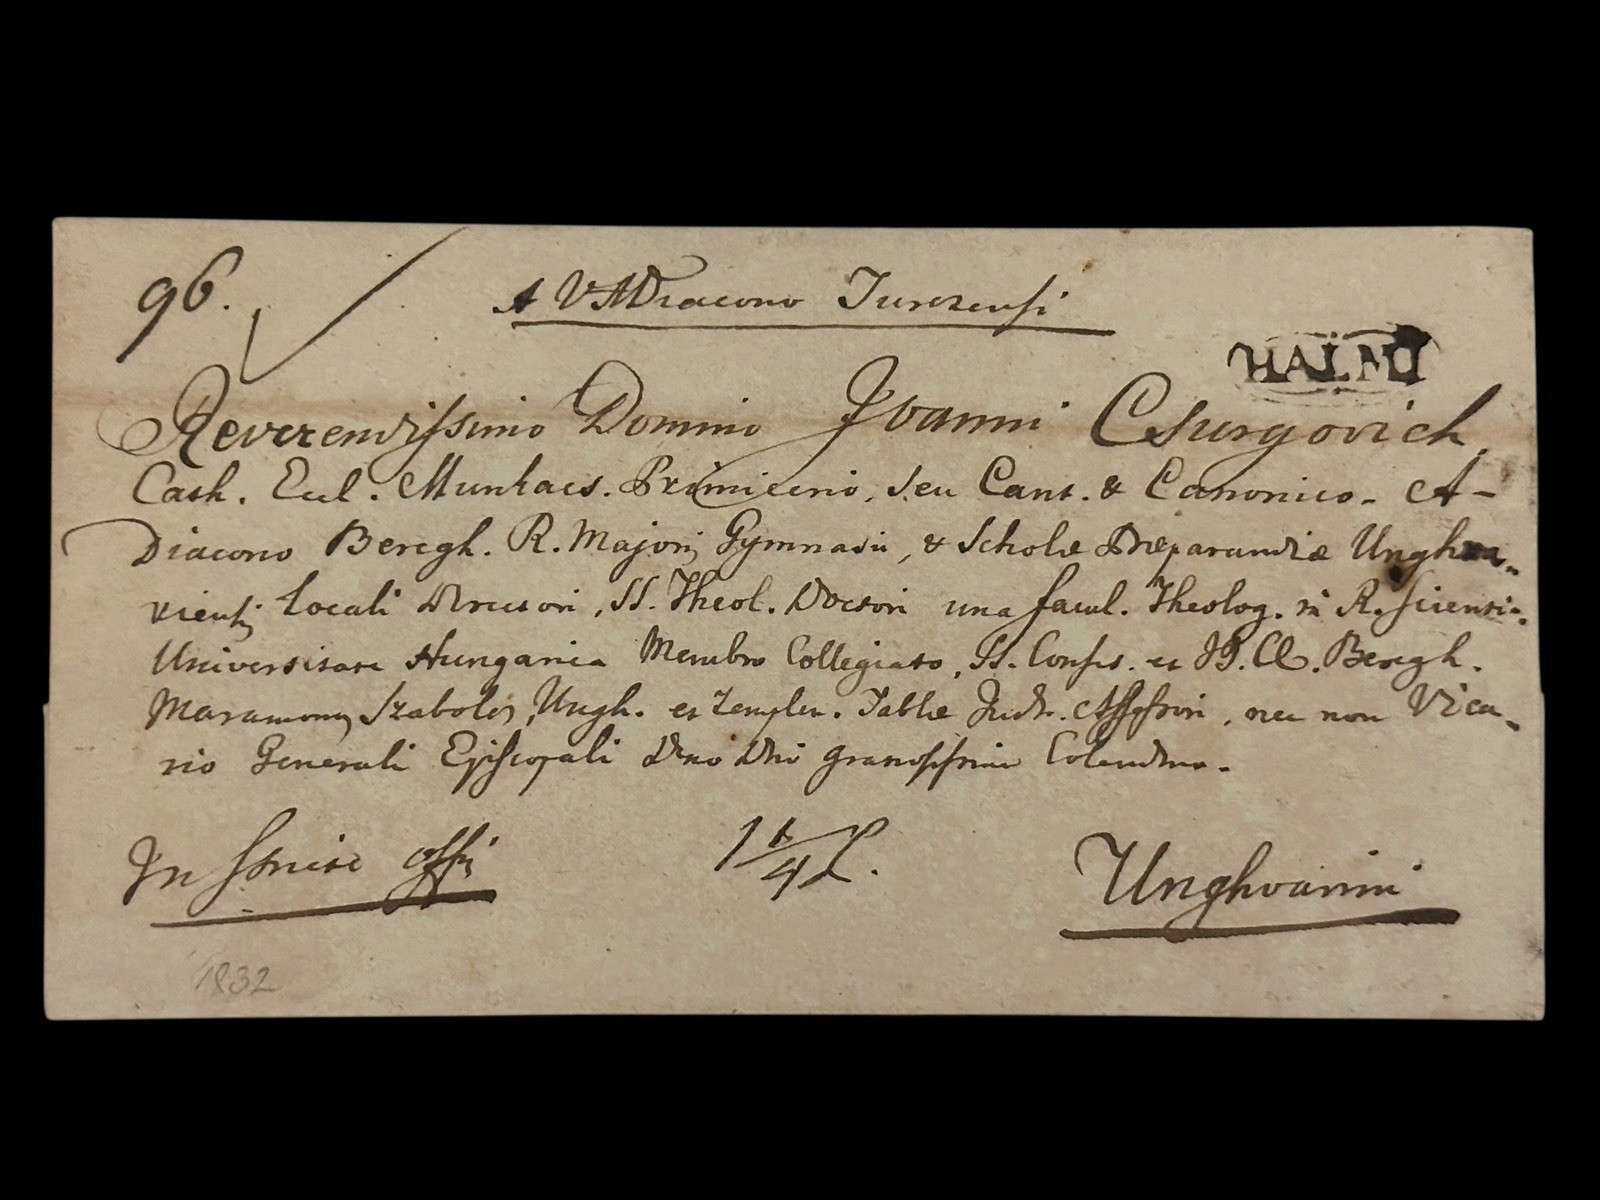 96.
A VADiacono Turczensi
HALMI
Reverendissimo Domino Joanni Csurgovich
Cath. Eccl. Munkacs. Primicerio, seu Cant. & Canonico. A-
Diacono Beregh. R. Majoris Gymnasii, & Scholæ Præparandiæ Unghva-
riensis Locali Directori, SS. Theol. Doctori una facul. Theolog. in R. Scienti.
Universitate Hungarica Membro Collegiato, SS. Consis. et II. CC. Beregh.
Maramoros, Szabolcs, Ungh. et Zemplen. Tablæ Judr. Assessori, nec non Vica-
rio Generali Episcopali Dno Dno gratiosissimo Colendmo.
In Servitio Offi
1 1/4 L.
Unghvarini
1832